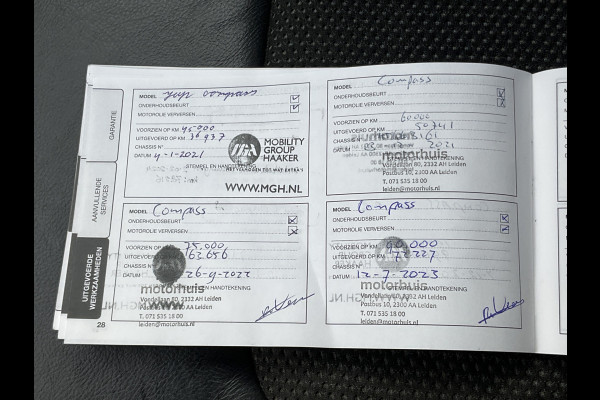 GARANTIE
AANVULLENDE
SERVICES
UITGEVOERDE
WERKZAAMHEDEN
28
MODEL Jeep compass
ONDERHOUDSBEURT
MOTOROLIE VERVERSEN
VOORZIEN OP KM 45.000
UITGEVOERD OP KM 36937
CHASSIS N°
DATUM 4-1-2021
STEMPEL EN HANDTEKENING
MOBILITY
GROUP
HAAKER
WWW.MGH.NL
MODEL Compass
ONDERHOUDSBEURT
MOTOROLIE VERVERSEN
VOORZIEN OP KM 60.000
UITGEVOERD OP KM
CHASSIS N°
DATUM 2021
STEMPEL EN HANDTEKENING
motorhuis
Vondellaan 80, 2332 AH Leiden
Postbus 10, 2300 AA Leiden
T. 071 535 18 00
leiden@motorhuis.nl
MODEL Compass
ONDERHOUDSBEURT
MOTOROLIE VERVERSEN
VOORZIEN OP KM 75.000
UITGEVOERD OP KM 62656
CHASSIS N°
DATUM 26-9-2022
STEMPEL EN HANDTEKENING
motorhuis
Vondellaan 80, 2332 AH Leiden
Postbus 10, 2300 AA Leiden
T. 071 535 18 00
leiden@motorhuis.nl
MODEL Compass
ONDERHOUDSBEURT
MOTOROLIE VERVERSEN
VOORZIEN OP KM 90.000
UITGEVOERD OP KM
CHASSIS N°
DATUM 12-7-2023
STEMPEL EN HANDTEKENING
motorhuis
Vondellaan 80, 2332 AH Leiden
Postbus 10, 2300 AA Leiden
T. 071 535 18 00
leiden@motorhuis.nl